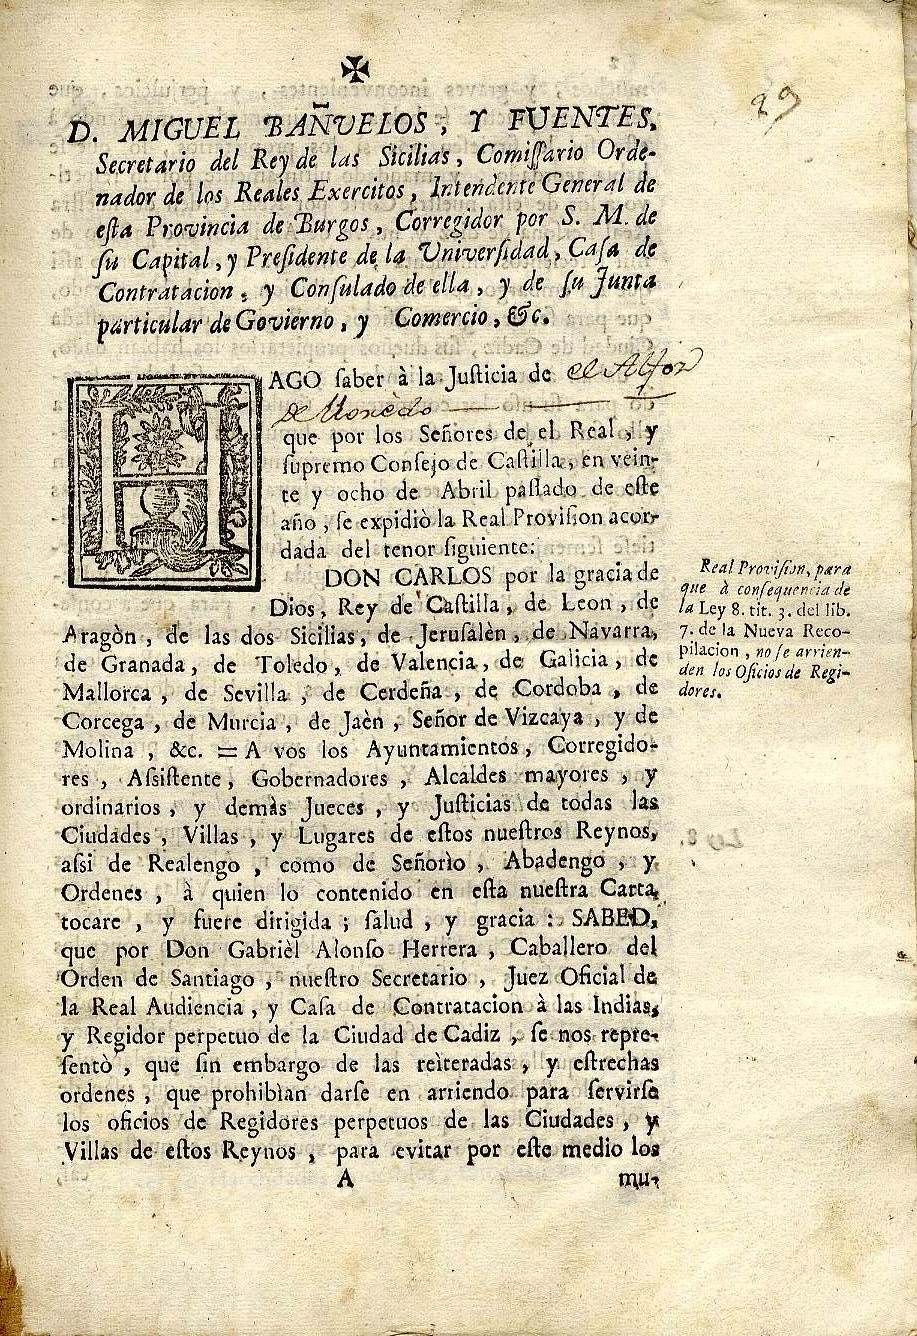 29
D. MIGUEL BAÑUELOS, Y FUENTES,
Secretario del Rey de las Sicilias, Comiſſario Orde-
nador de los Reales Exercitos, Intendente General de
eſta Provincia de Burgos, Corregidor por S. M. de
ſu Capital, y Preſidente de la Univerſidad, Caſa de
Contratacion, y Conſulado de ella, y de ſu Junta
particular de Govierno, y Comercio, &c.
HAGO ſaber à la Juſticia de el Alfoz
de Moredo
que por los Señores de el Real, y
ſupremo Conſejo de Caſtilla, en vein-
te y ocho de Abril paſſado de eſte
año, ſe expidiò la Real Proviſion acor-
dada del tenor ſiguiente:
DON CARLOS por la gracia de
Dios, Rey de Caſtilla, de Leon, de
Aragòn, de las dos Sicilias, de Jeruſalèn, de Navarra,
de Granada, de Toledo, de Valencia, de Galicia, de
Mallorca, de Sevilla, de Cerdeña, de Cordoba, de
Corcega, de Murcia, de Jaèn, Señor de Vizcaya, y de
Molina, &c. = A vos los Ayuntamientos, Corregido-
res, Aſsiſtente, Gobernadores, Alcaldes mayores, y
ordinarios, y demàs Jueces, y Juſticias de todas las
Ciudades, Villas, y Lugares de eſtos nueſtros Reynos,
aſsi de Realengo, como de Señorìo, Abadengo, y
Ordenes, à quien lo contenido en eſta nueſtra Carta
tocare, y fuere dirigida; ſalud, y gracia: SABED,
que por Don Gabrièl Alonſo Herrera, Caballero del
Orden de Santiago, nueſtro Secretario, Juez Oficial de
la Real Audiencia, y Caſa de Contratacion à las Indias,
y Regidor perpetuo de la Ciudad de Cadiz, ſe nos repre-
ſentò, que ſin embargo de las reìteradas, y eſtrechas
ordenes, que prohibìan darſe en arriendo para ſervirſe
los oficios de Regidores perpetuos de las Ciudades, y
Villas de eſtos Reynos, para evitar por eſte medio los
A
mu-
Real Proviſion, para
que à conſequencia de
la Ley 8. tit. 3. del lib.
7. de la Nueva Reco-
pilacion, no ſe arrien-
den los Oficios de Regi-
dores.